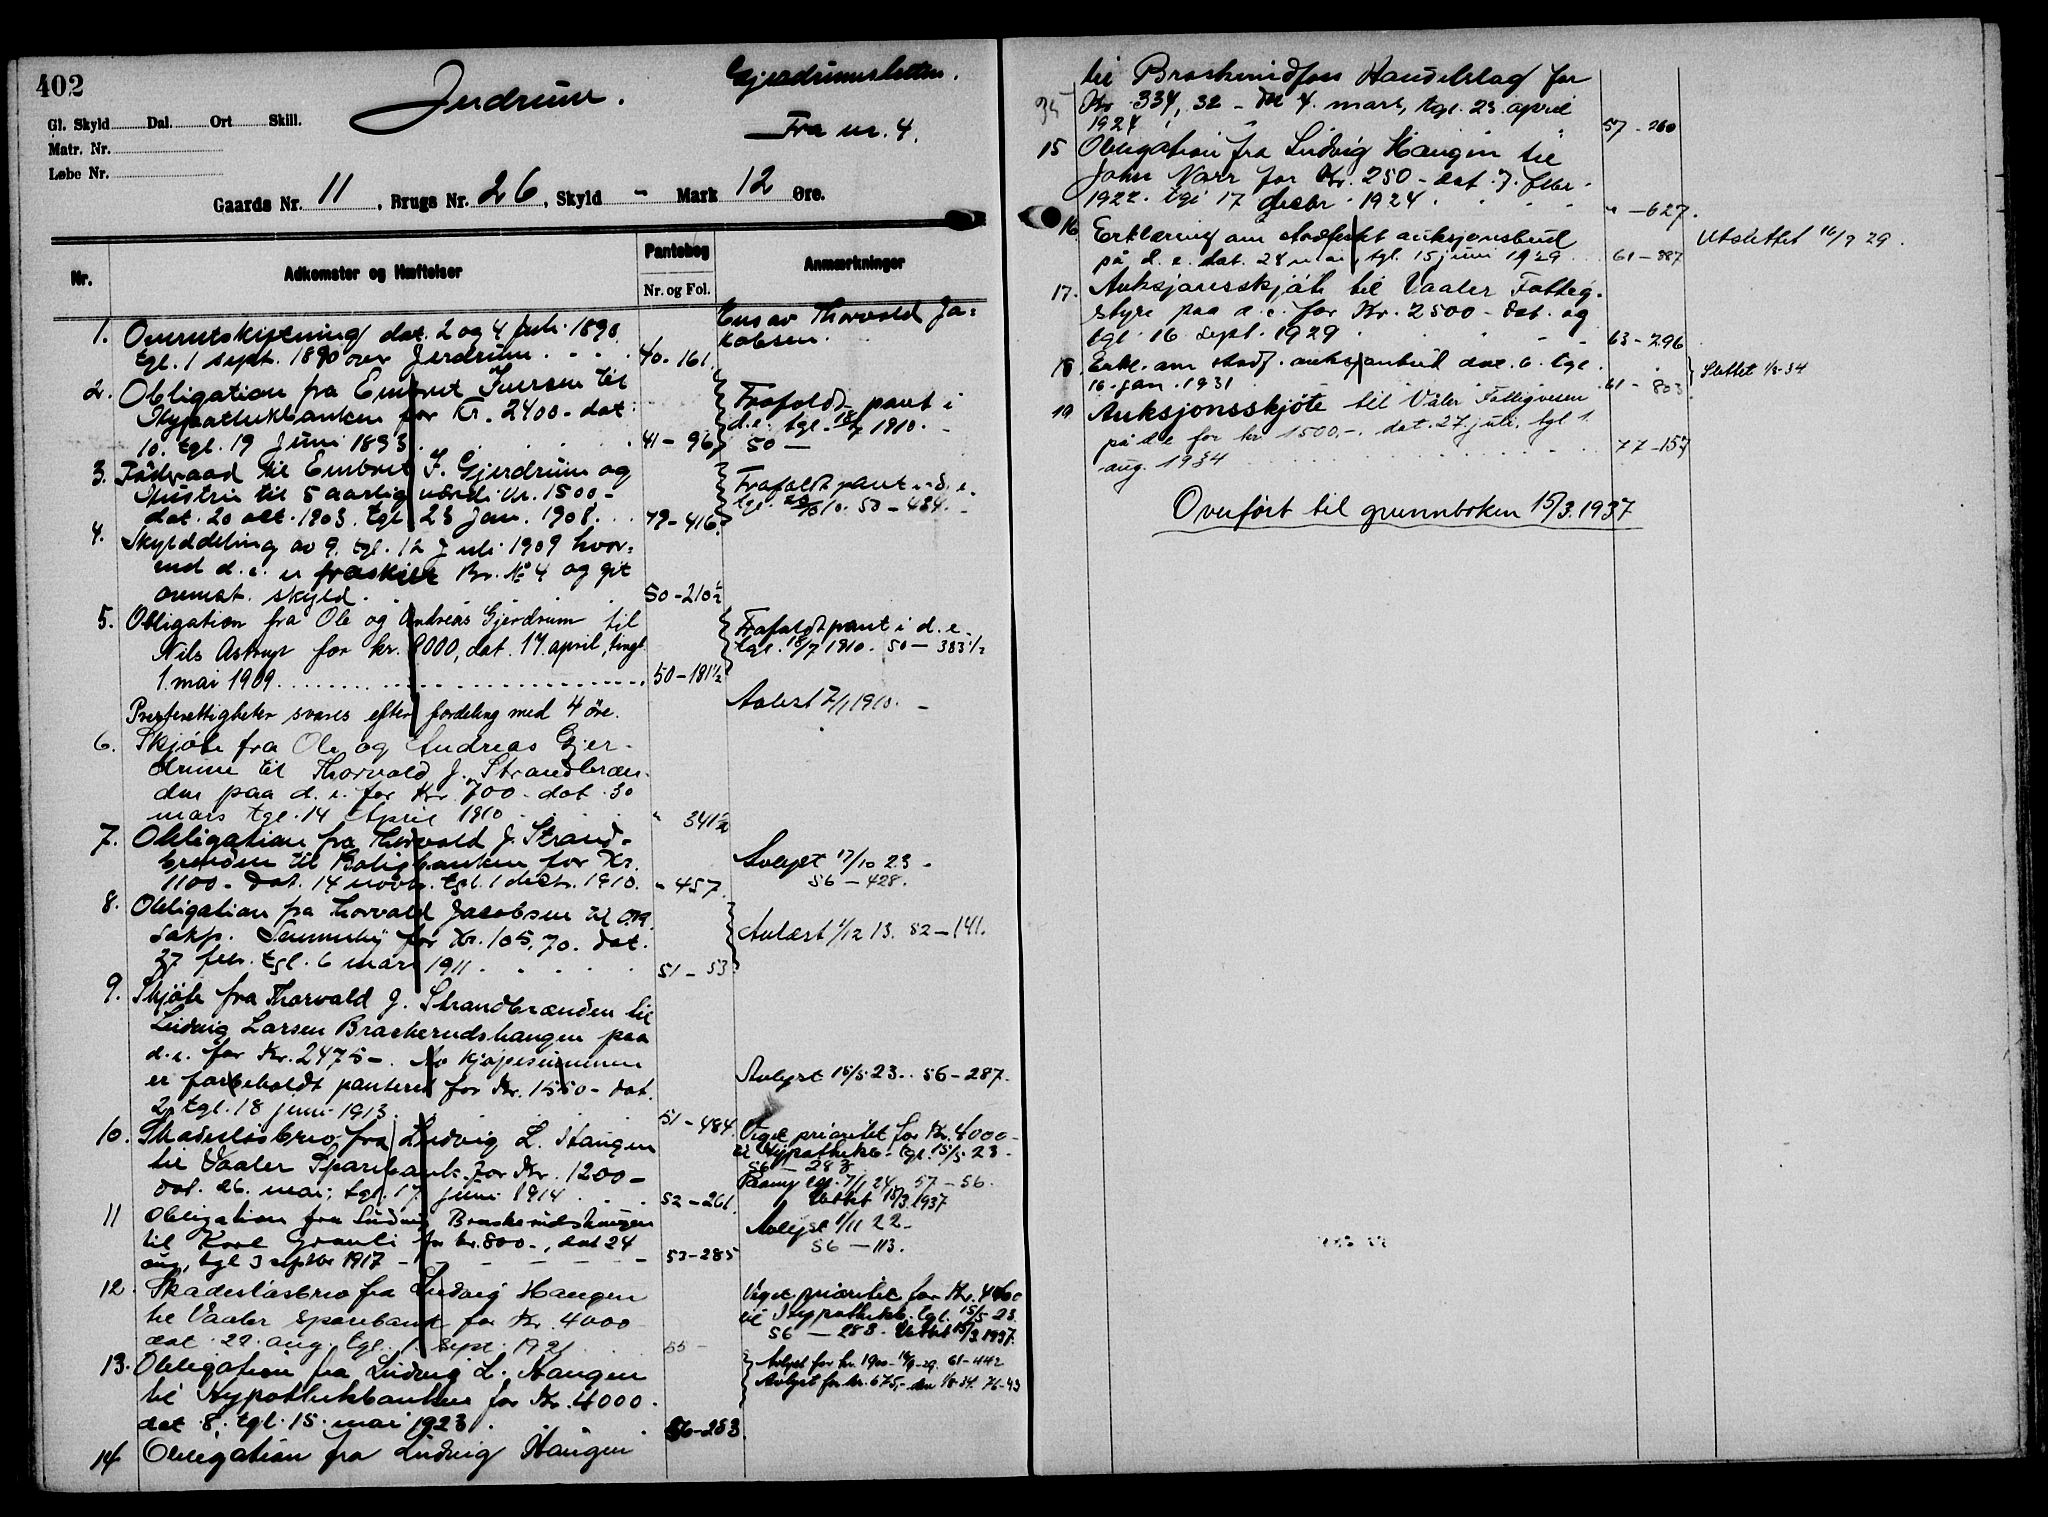 402
Jerdrum.
Gjerdrumsletten.
Fra nr. 4.
Gl. Skyld Dal. Ort Skill.
Matr. Nr.
Løbe Nr.
Gaards Nr. 11, Brugs Nr. 26, Skyld - Mark 12 Øre.
Nr. Adkomster og Hæftelser Pantebog Anmærkninger
Nr. og Fol.
Eies av Thorvald Ja-
kobsen.
1. Omrutskiftning dat. 2 og 4 juli 1890
tgl. 1 sept. 1890 over Jerdrum . . . 40-161.
2. Obligation fra Embret Iversen til
Hypothekbanken for Kr. 2400- dat.
10. tgl. 19 juni 1893 . . . 41-96
Frafaldt pant i
d.e. tgl. 18/7 1910.
50 —
3. Føderaad til Embret I. Gjerdrum og
hustru til 5 aarlig værdi kr. 1500-
dat. 20 okt. 1903. tgl. 23 jan. 1908. . . 49-416.
Frafaldt pant i d.e.
4. Skylddeling av 9. tgl. 12 juli 1909 hvor-
ved d.e. er fraskilt Br. № 4 og git
anmst. skyld . . . 50-210 1/2
5. Obligation fra Ole og Andreas Gjerdrum til
Nils Astrup for kr. 8000, dat. 17. april, tingl.
1. mai 1909 . . . 50-181 1/2
Frafaldt pant i d.e.
tgl. 18/7 1910. 50 — 383 1/2
Presterettigheter svares efter fordeling med 4 øre.
Avløst 7/1 1910. -
6. Skjøte fra Ole og Andreas Gjer-
drum til Thorvald J. Strandbræn-
den paa d.e. for Kr. 700- dat. 30
mars tgl. 14 April 1910 . . . " 341 1/2
7. Obligation fra Thorvald J. Strand-
brenden til Boligbanken for Kr.
1100- dat. 14 novbr. tgl. 1 decbr. 1910. " 457.
Avlyst 17/10 23 -
56 — 428.
8. Obligation fra Thorvald Jacobsen til O.r.sg.
sakf. for Kr. 105,70. dat.
27 febr. tgl. 6 mars 1911. . . . 51-53.
Avlæst 1/12 13. 52 — 141.
9. Skjøte fra Thorvald J. Strandbrænden til
Ludvig Larsen Braskerudshaugen paa
d.e. for Kr. 2475-. Av kjøpesummen
er forbeholdt panteret for Kr. 1550- dat.
2, tgl. 18 juni 1913. . . . 51-484.
Avlyst 15/5 23. . 56-287.
10. Skadesløsbrev fra Ludvig L. Haugen
til Vaaler Sparebank for Kr. 1200-
dat. 26. mai, tgl. 17 juni 1914 . . . 52-261.
Veget prioritet for Kr. 4000-
til Hypothekb. tgl. 15/5 23 -
56 — 283
7/1 24. 57-56.
Slettet 15/3 1937
11 Obligation fra Ludvig Braskerudshaugen
til Karl Granli for kr. 800-, dat 24
aug, tgl 3 septbr 1917 - - - 53-285
Avlyst 1/11 22 -
56 — 113.
12. Skadesløsbrev fra Ludvig Haugen
til Vaaler Sparebank for Kr. 4000
dat. 29. aug. tgl. 1. sept. 1921 . . 55 -
Veget prioritet for Kr. 4000
til Hypothekb. tgl. 15/5 23.
56 — 283. Slettet 15/3 1937.
13. Obligation fra Ludvig L. Haugen
til Hypothekbanken for Kr. 4000.
dat. 8. tgl. 15. mai 1923. . . . 56-283.
Avlyst for kr. 1900- 16/9-29. 61-442
Avlyst for kr. 675,- den 1/8-34. 76-43
14 Obligation fra Ludvig Haugen
til Braskerudfoss Handelslag for
Kr 334,32 - dat 4. mars, tgl. 23. april
1924 57-260
15 Obligation fra Ludvig Haugen til
John Narr for Kr. 250- dat. 7. febr.
1922. tgl 17 decbr. 1924. . . . " - 627.
16. Erklæring om stadfestet auksjonsbud
på d.e. dat. 28 mai, tgl. 15 juni 1929 . . . 61-887
Utslettet 16/9 29.
17. Auksjonsskjøte til Vaaler Fattig-
styre paa d.e. for Kr. 2500- dat. og
tgl. 16. sept. 1929 . . . 63-296
18. Erkl. om stadf. auksjonsbud dat. 6. tgl.
16. jan. 1931. 61-803
Slettet 1/8-34
19 Auksjonsskjøte til Våler Fattigvesen
på d.e for kr 1500,-. dat. 27 juli, tgl 1.
aug. 1934 . . . 77-157
Overført til grunnboken 15/3.1937